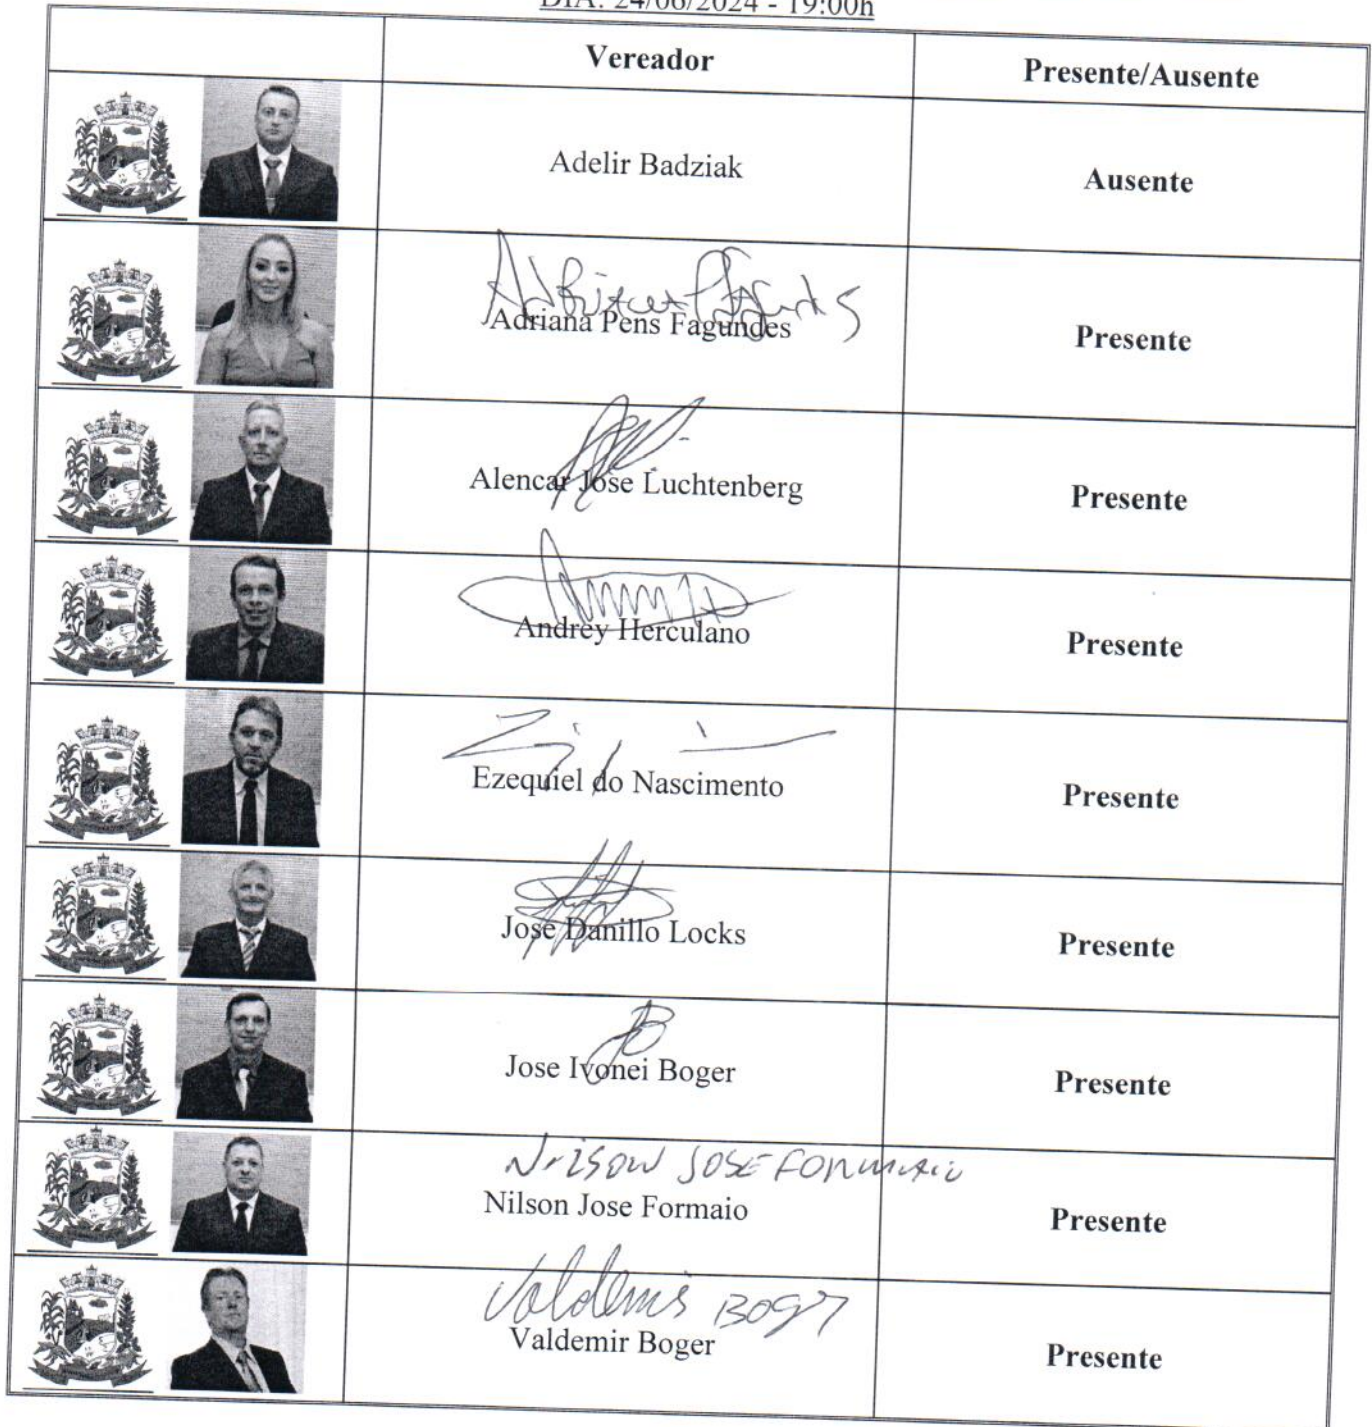 DIA: 24/06/2024 - 19:00h
Vereador Presente/Ausente
Adelir Badziak Ausente
Adriana Pens Fagundes Presente
Alencar Jose Luchtenberg Presente
Andrey Herculano Presente
Ezequiel do Nascimento Presente
Jose Danillo Locks Presente
Jose Ivonei Boger Presente
Nilson Jose Formaio
Nilson Jose Formaio Presente
Valdemir Boger
Valdemir Boger Presente